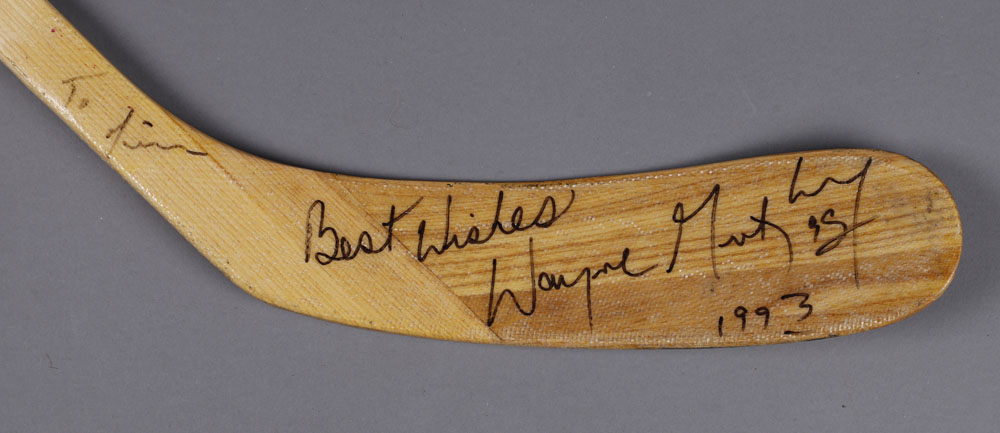 To Jim
Best Wishes
Wayne Gretzky 99
1993